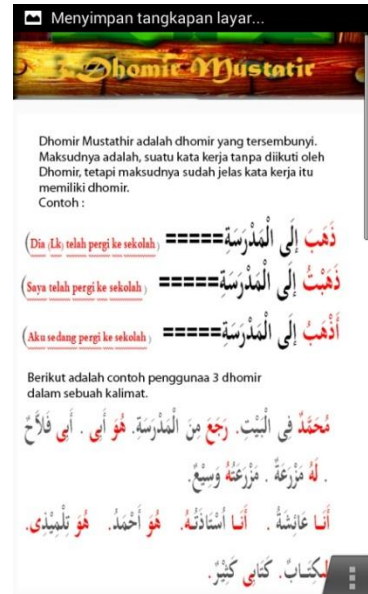 Menyimpan tangkapan layar...
Dhomir Mustatir
Dhomir Mustathir adalah dhomir yang tersembunyi.
Maksudnya adalah, suatu kata kerja tanpa diikuti oleh
Dhomir, tetapi maksudnya sudah jelas kata kerja itu
memiliki dhomir.
Contoh :
ذَهَبَ إِلَى الْمَدْرَسَةِ===== (Dia (Lk) telah pergi ke sekolah)
ذَهَبْتُ إِلَى الْمَدْرَسَةِ===== (Saya telah pergi ke sekolah)
أَذْهَبُ إِلَى الْمَدْرَسَةِ===== (Aku sedang pergi ke sekolah)
Berikut adalah contoh penggunaa 3 dhomir
dalam sebuah kalimat.
مُحَمَّدٌ فِي الْبَيْتِ. رَجَعَ مِنَ الْمَدْرَسَةِ. هُوَ أَبِى . أَبِى فَلاَّحٌ
. لَهُ مَزْرَعَةٌ . مَزْرَعَتُهُ وَسِيْعٌ.
أَنَا عَائِشَةُ . أَنَا اُسْتَاذَتُهُ. هُوَ أَحْمَدُ. هُوَ تِلْمِيْذِى.
لِكِتَـابٌ. كَتَابِى كَثِيْرٌ.